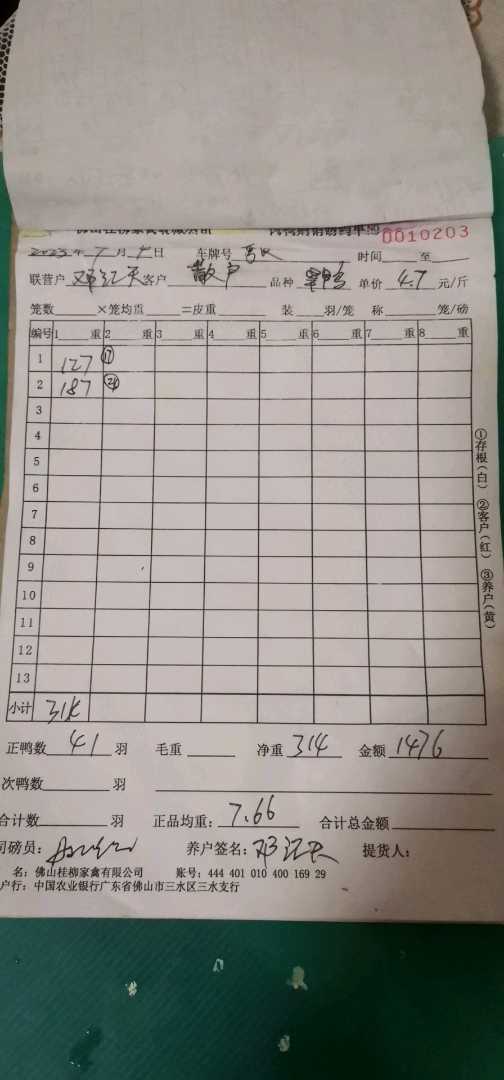 佛山桂柳家禽有限公司
0010203
2023年9月4日 车牌号 时间 至
联营户 邓江天 客户 散户 品种 单价 4.7 元/斤
笼数 ×笼均重 =皮重 装 羽/笼 称 笼/磅
编号 1 重 2 重 3 重 4 重 5 重 6 重 7 重 8 重
1 127 ⑰
2 187 ㉔
3
4
5
6
7
8
9
10
11
12
13
小计 314
正鸭数 41 羽 毛重 净重 314 金额 1476
次鸭数 羽
合计数 羽 正品均重: 7.66 合计总金额
司磅员: 养户签名: 邓江天 提货人:
名: 佛山桂柳家禽有限公司 账号: 444 401 010 400 169 29
户行: 中国农业银行广东省佛山市三水区三水支行
①存根(白) ②客户(红) ③养户(黄)